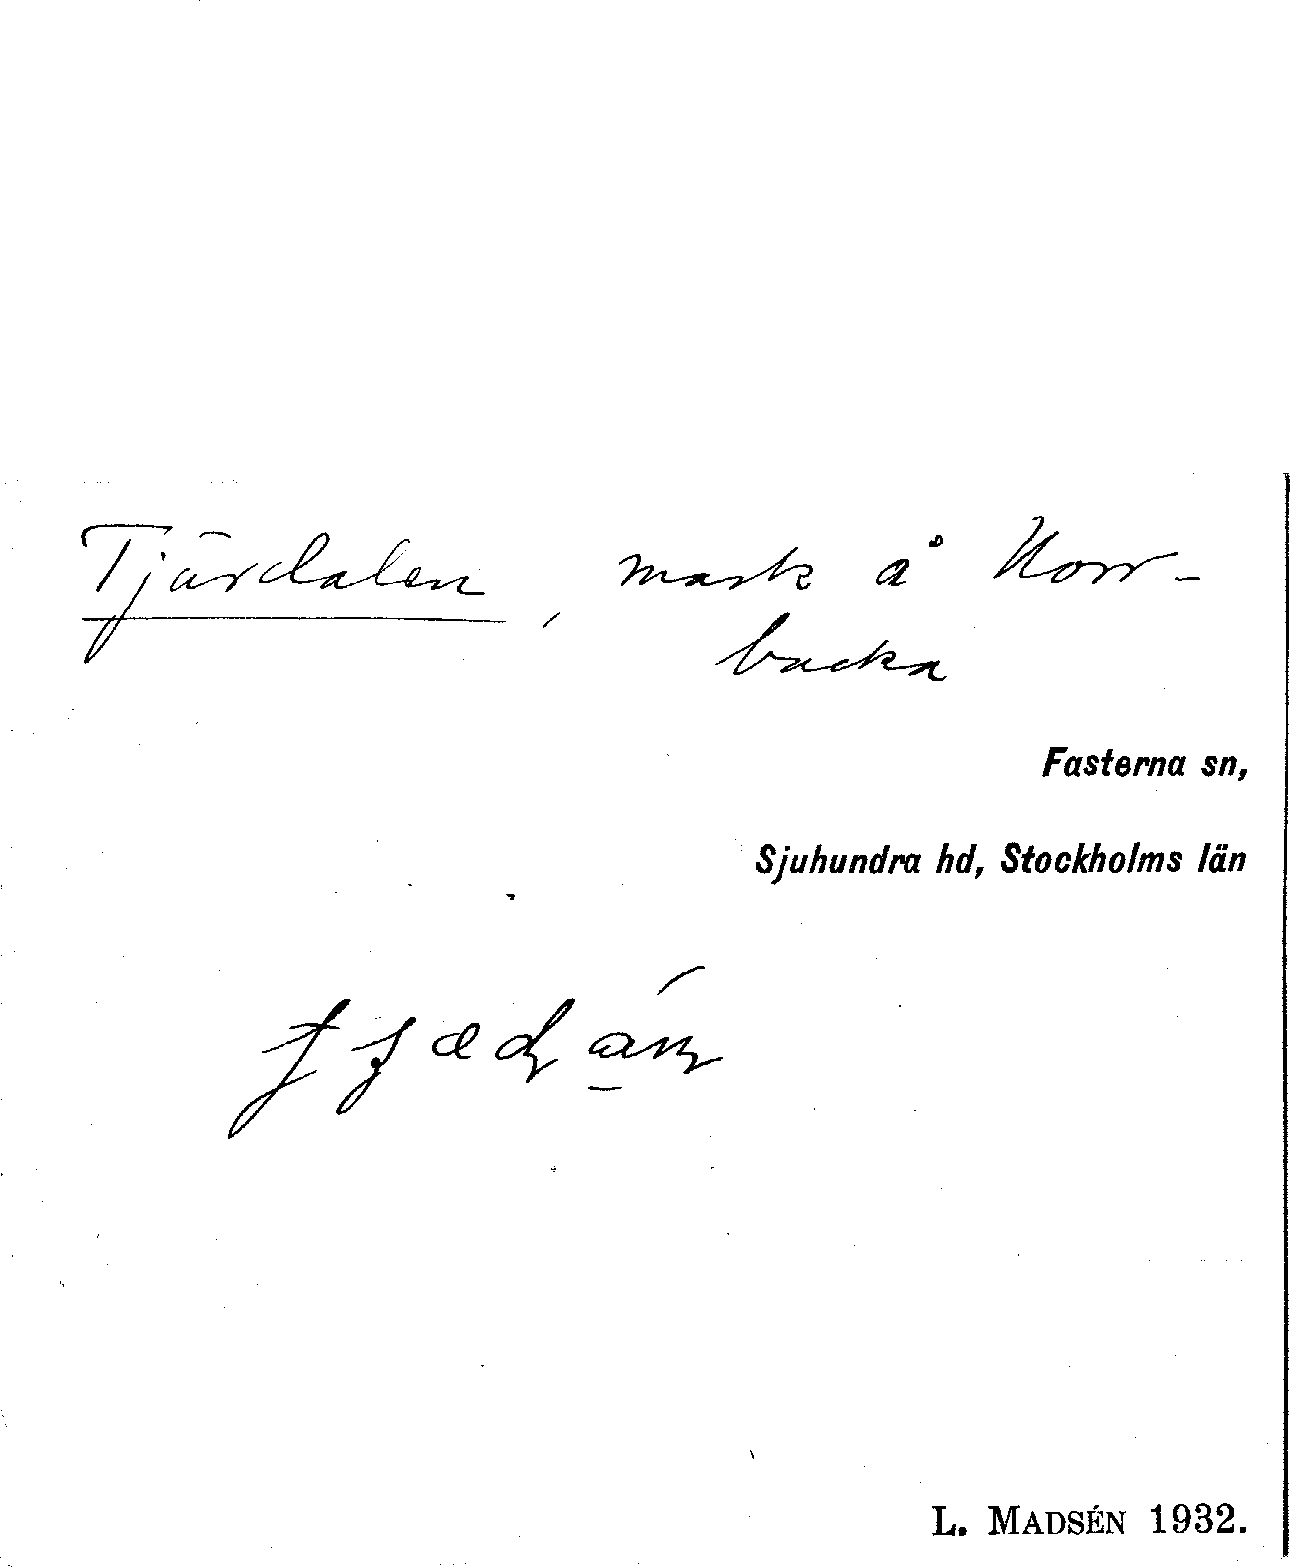 Tjärdalen, mark å Norr-
backa
Fasterna sn,
Sjuhundra hd, Stockholms län
L. MADSÉN 1932.